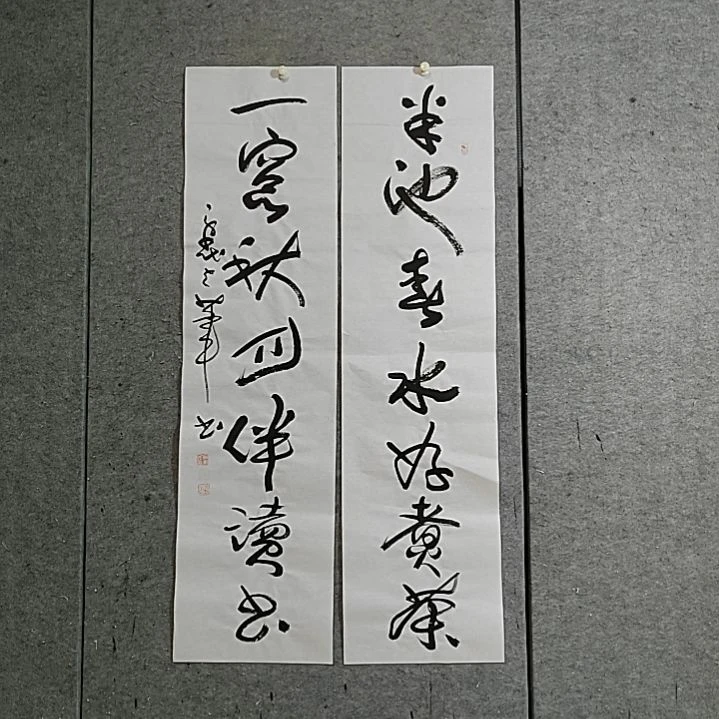 半池春水好煮茶
一窗秋月伴读书